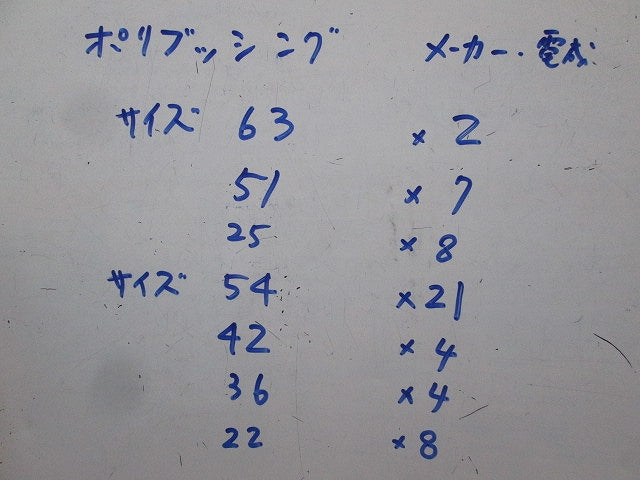 ポリブッシング メーカー・電成
サイズ 63 × 2
51 × 7
25 × 8
サイズ 54 × 21
42 × 4
36 × 4
22 × 8